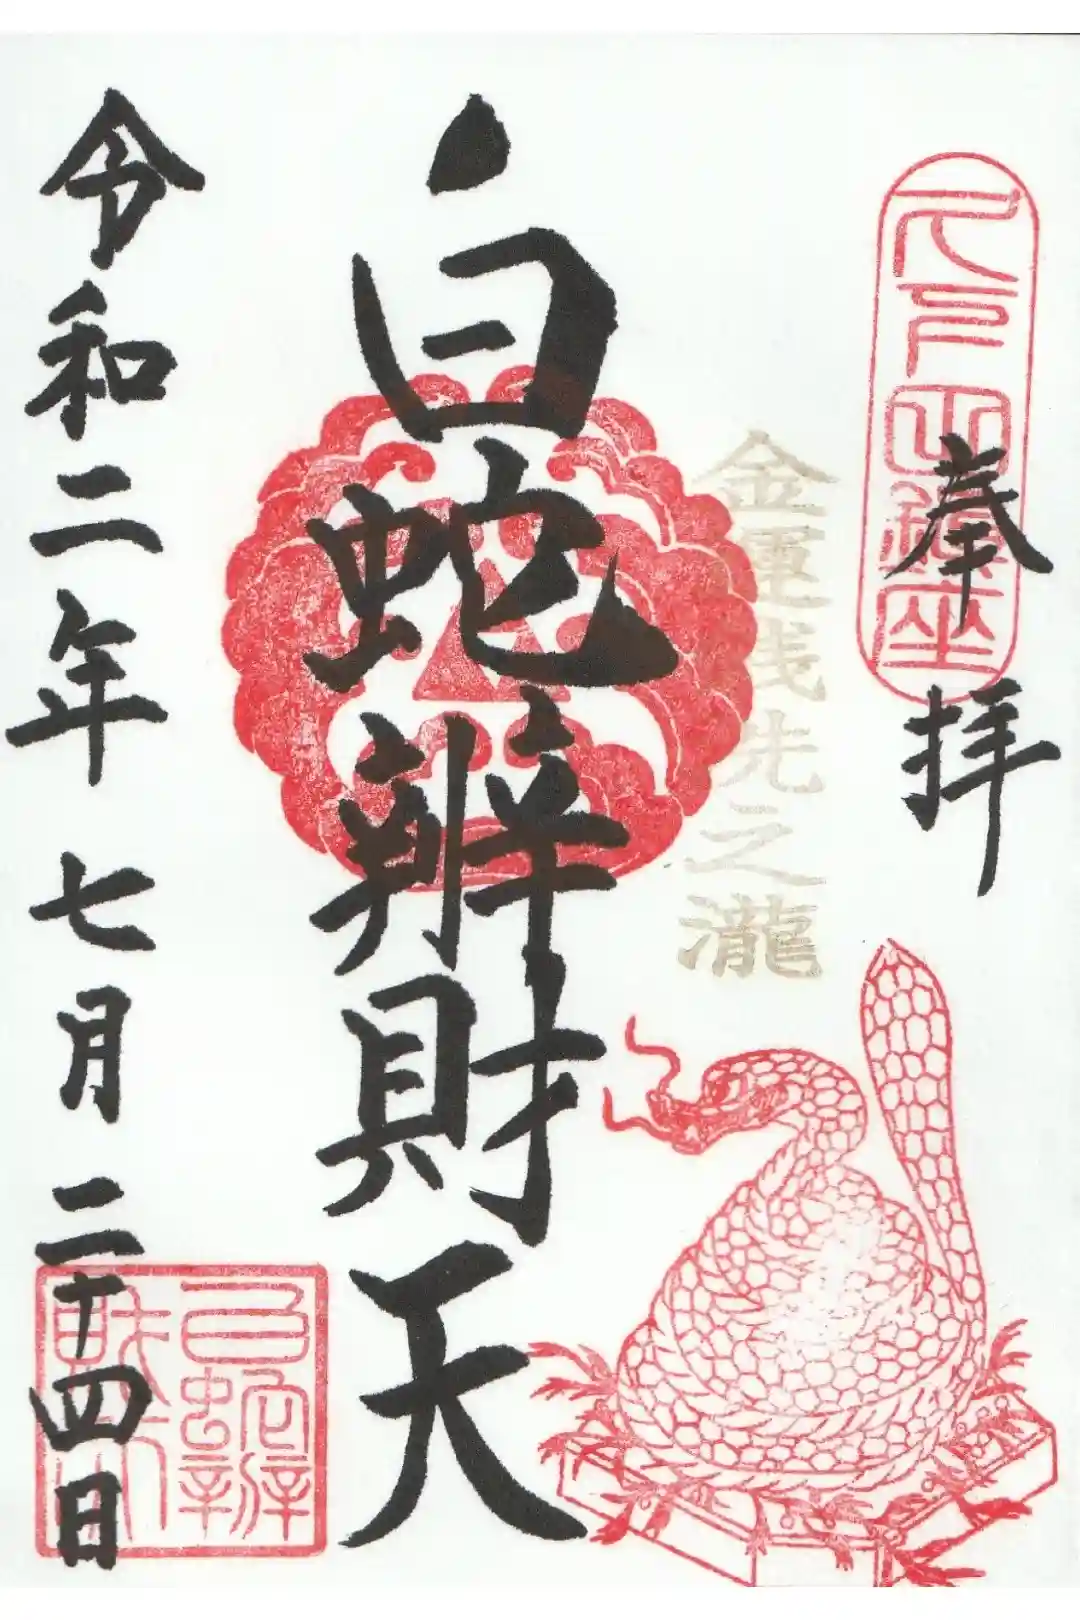 奉拝
金運銭洗之瀧
白蛇辨財天
令和二年七月二十四日
白蛇辨
財天